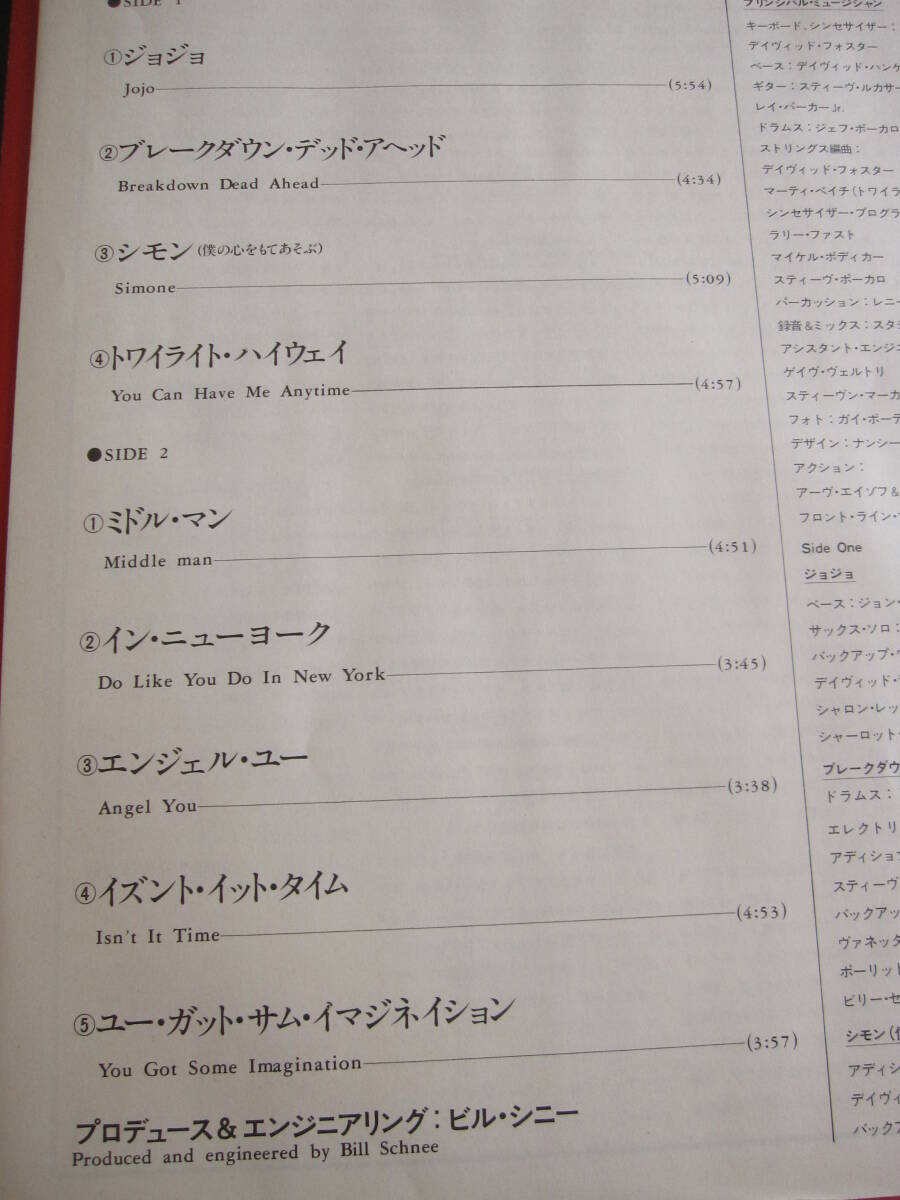 ●SIDE 1
①ジョジョ
Jojo (5:54)
②ブレークダウン・デッド・アヘッド
Breakdown Dead Ahead (4:34)
③シモン(僕の心をもてあそぶ)
Simone (5:09)
④トワイライト・ハイウェイ
You Can Have Me Anytime (4:57)
●SIDE 2
①ミドル・マン
Middle man (4:51)
②イン・ニューヨーク
Do Like You Do In New York (3:45)
③エンジェル・ユー
Angel You (3:38)
④イズント・イット・タイム
Isn't It Time (4:53)
⑤ユー・ガット・サム・イマジネイション
You Got Some Imagination (3:57)
プロデュース&エンジニアリング:ビル・シニー
Produced and engineered by Bill Schnee
プリンシパル・ミュージシャン
キーボード、シンセサイザー:
デイヴィッド・フォスター
ベース:デイヴィッド・ハンゲ
ギター:スティーヴ・ルカサー
レイ・パーカーJr.
ドラムス:ジェフ・ポーカロ
ストリングス編曲:
デイヴィッド・フォスター
マーティ・ペイチ(トワイラ
シンセサイザー・プログラ
ラリー・ファスト
マイケル・ボディカー
スティーヴ・ポーカロ
パーカッション:レニー
録音&ミックス:スタジ
アシスタント・エンジニ
ゲイヴ・ヴェルトリ
スティーヴン・マーカ
フォト:ガイ・ボーデ
デザイン:ナンシー
アクション:
アーヴ・エイゾフ&
フロント・ライン・
Side One
ジョジョ
ベース:ジョン・
サックス・ソロ:
バックアップ・
デイヴィッド・
シャロン・レッ
シャーロット・
ブレークダウ
ドラムス:
エレクトリ
アディショナ
スティーヴ
バックアッ
ヴァネッタ
ポーリット
ビリー・セ
シモン(僕
アディシ
デイヴィ
バックア